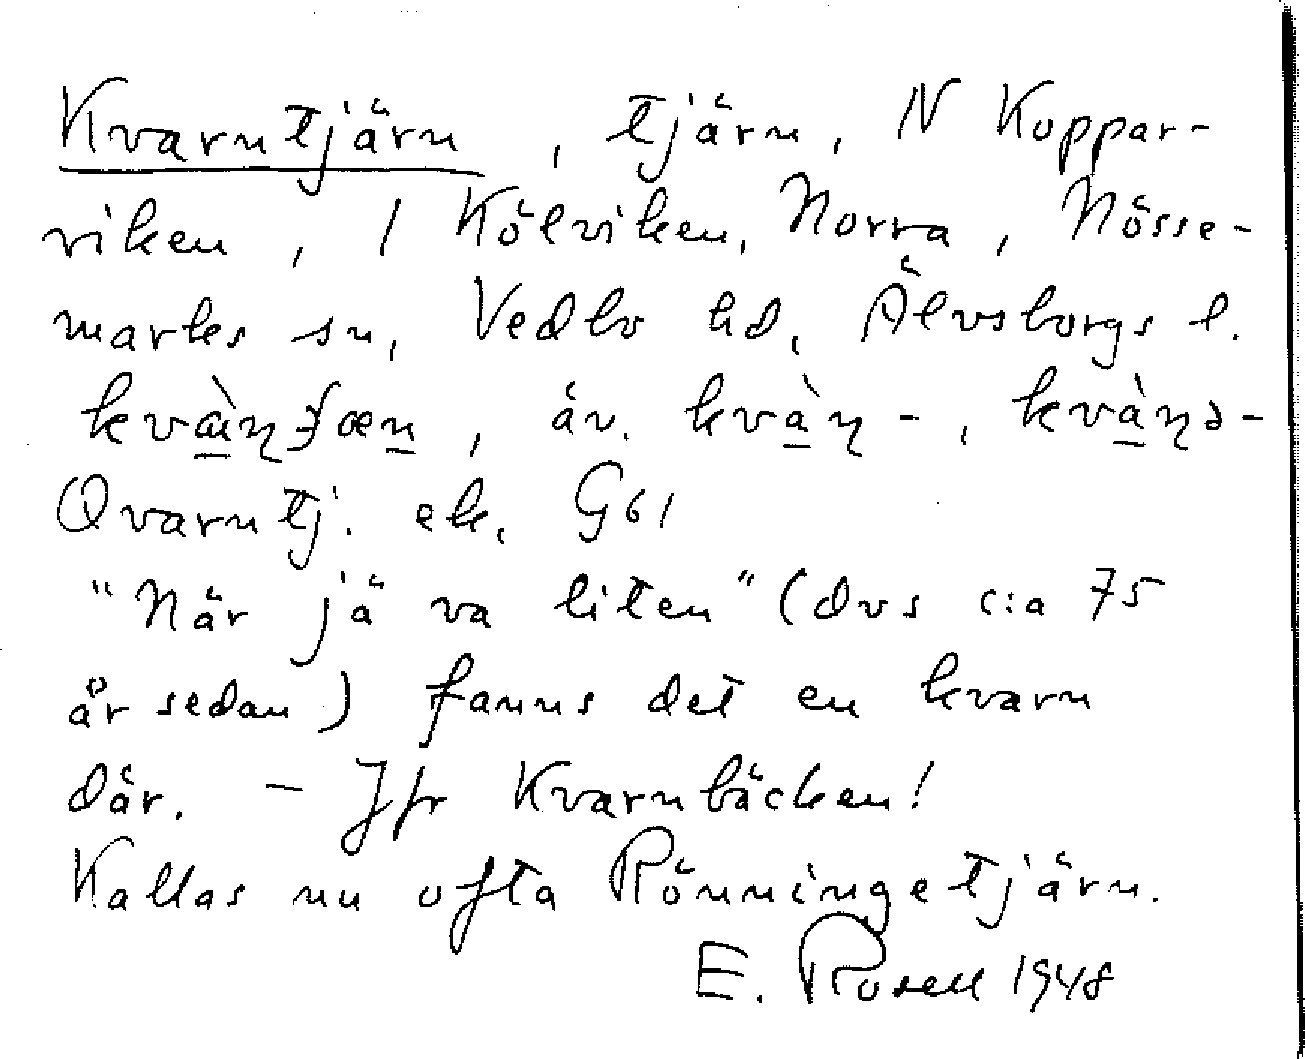 Kvarntjärn, tjärn, N Koppar-
viken, 1 Kölviken, Norra, Nösse-
marks sn, Vedbo hd, Älvsborgs l.
äv. kvàɳ-, kvàɳə-
Qvarntj. ek. G61
"När jä va liten" (dvs c:a 75
år sedan) fanns det en kvarn
där. – Jfr Kvarnbäcken!
Kallas nu ofta Rönningetjärn.
E. Rosell 1948